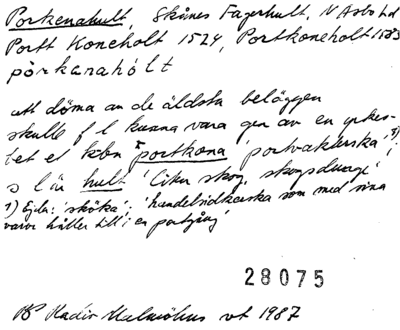 Porkenahult, Skånes Fagerhult, N Åsbo hd
Portt Koneholt 1524, Portkoneholt 1583
pòrkanahólt
att döma av de äldsta beläggen
skulle f l kunna vara gen av en yrkes-
bet el kbn *portkona 'portvakterska' 1);
s l är hult 'liten skog, skogsdunge'
1) Ejder: 'sköka'; 'handelsidkerska som med sina
varor håller till i en portgång'
28075
Malmöhus vt 1987